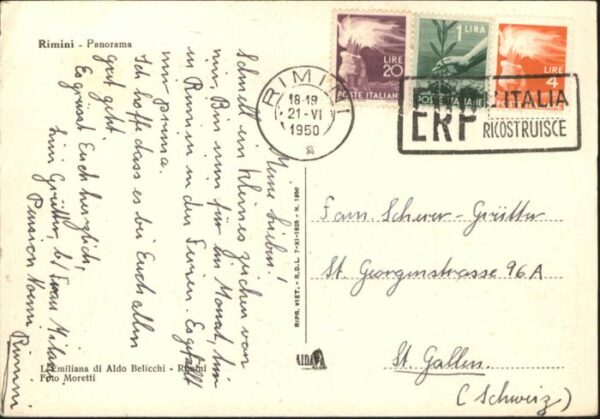 Rimini - Panorama
LIRE
20
POSTE ITALIANE
1 LIRA
POSTE ITALIANE
LIRE
4
RIMINI
18-19
21-VI
1950
L'ITALIA
ERP RICOSTRUISCE
Meine Lieben!
Schnell ein kleines Zeichen von
mir. Bin nun für ein Monat, hier
in Rimini in den Ferien. Es gefällt
mir prima.
Ich hoffe dass es bei Euch allen
gut geht.
Es grüsst Euch herzlich,
Grütter,
Pension
Rimini
Fam. Scherer-Grütter
St. Georgenstrasse 96A
St. Gallen.
(Schweiz)
RIPR. VIET. - R.D.L. 7-XI-1925 - N. 1950
L'Emiliana di Aldo Belicchi - Rimini
Foto Moretti